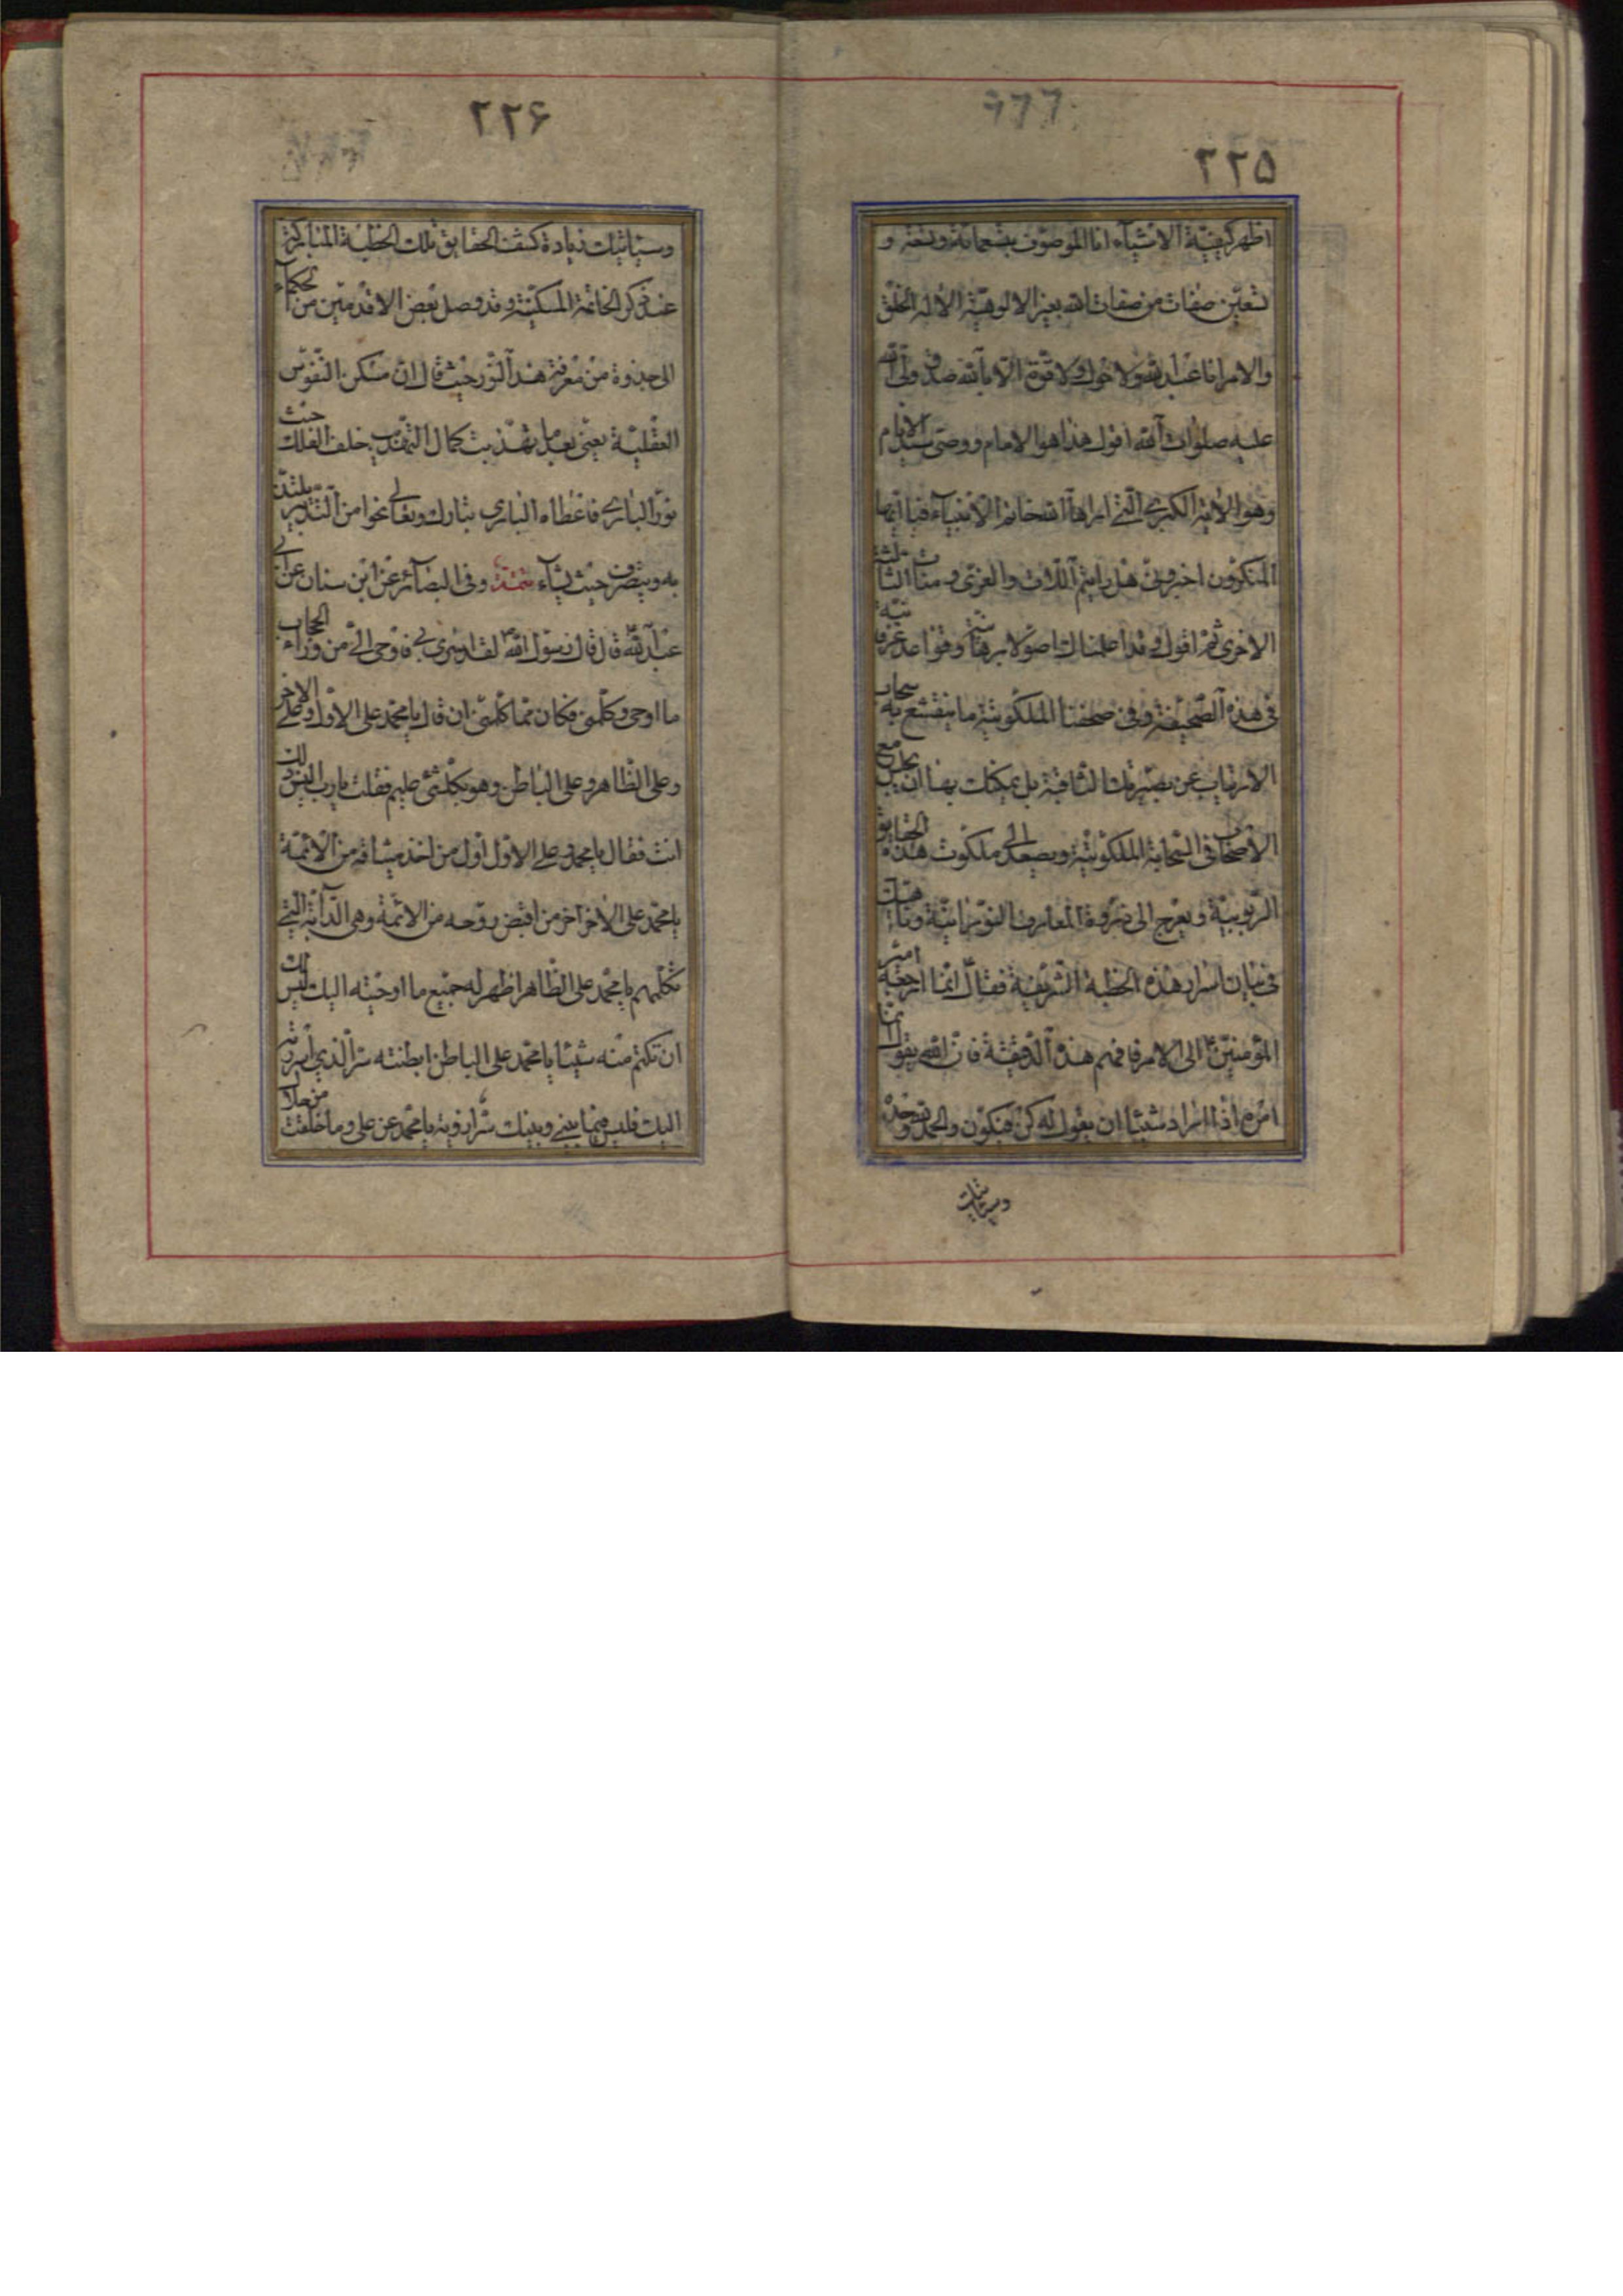 ٢٢٥
اظهر كيفية الاشياء انا الموصوف بتسعما ئة وتسعة و
تسعين صفات من صفات الله بغير الالوهية الا له الخلق
والامر انا عبد الله ولا حول ولا قوة الا بالله صدق ولى الله
عليه صلوات الله اقول هذا هو الامام ووصى سيد الانام
وهو الاية الكبرى التى اراها الله خاتم الانبياء فيا ايها
المنكرون اخبرونى هل رايتم اللات والعزى و منات الثالثة
الاخرى ثم اقول وقد اعلمناك اصولا برهانية وقواعد عرفانية
فى هذه الصحيفة وفى صحفنا الملكوتية ما ينقشع به سحاب
الارتياب عن بصيرتك الثاقبة بل يمكنك بها ان تجلس مع
الاصحاب فى السحابة الملكوتية ويصعد الى ملكوت هذه الحقايق
الربوبية ويعرج الى ذروة المعارف النورانية وناهيك
فى بيان اسرار هذه الخطبة الشريفة فقال انما ارجعه امير
المؤمنين الى الامر فافهم هذه الدقيقة فان الله يقول انما
امره اذا اراد شيئا ان يقول له كن فيكون والحمد لله وحده
وسياتيك
٢٢۶
وسياتيك زيادة كشف الحقايق تلك الخطبة المباركة
عند ذكر الخاتمة المسكية وقد وصل بعض الاقدمين من الحكماء
الى جذوة من معرفة هذا النور حيث قال ان مسكن النفوس
العقلية يعنى بعد تهذيب كمال التهذيب خلف الفلك حيث
نور البارى فاعطاه البارى تبارك وتعالى نحوا من التدبير يلتذ
به ويتصرف حيث يشاء تتمة وفى البصائر عن ابن سنان عن ابى
عبد الله قال قال رسول الله لقد اسرى بى فاوحى الى من وراء الحجاب
ما اوحى وكلمنى فكان مما كلمنى ان قال يا محمد على الاول وعلى الاخر
وعلى الظاهر وعلى الباطن وهو بكل شئ عليم فقلت يا رب اليس ذلك
انت فقال يا محمد على الاول اول من اخذ ميثاقه من الائمة
يا محمد على الاخر اخر من اقبض روحه من الائمة وهى الدابة التى
تكلمهم يا محمد على الظاهر اظهر له جميع ما اوحيته اليك ليس لك
ان تكتم منه شيئا يا محمد على الباطن ابطنته سر الذى اسررته
اليك فليس فيما بينى وبينك سر ازويه يا محمد عن على وما خلقت من حلال